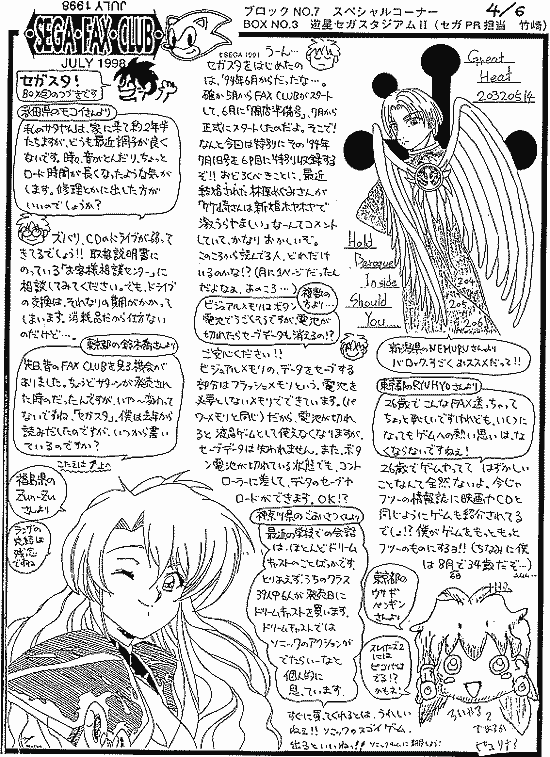 JULY 1998
・SEGA・FAX・CLUB・
JULY 1998
ブロックNO.7 スペシャルコーナー 4/6
BOX NO.3 遊星セガスタジアムⅡ (セガPR担当 竹崎)
©SEGA 1991
セガスタ!
BOX③のつづきです
私のサタやんは、家に来て約2年半
たちますが、どうも最近調子が良く
ないです。時々、音がとんだり、ちょっと
ロード時間が長くなったような気が
します。修理とかに出した方が
いいのでしょうか?
ズバリ、CDのドライブが弱って
きてるでしょう!! 取扱説明書に
のっている「お客様相談センター」に
相談してみてください。でも、ドライブ
の交換は、それなりの期間がかかって
しまいます。消耗品だから仕方ない
のだけど…
東京都の鈴木橋さんより
先日、昔のFAX CLUBを見る機会が
ありました。ちょうどサターンが発売され
た時のだったんですが、いやー変わって
ないですね、「セガスタ」。僕は去年から
読みだしたのですが、いつから書い
ているのですか?
うーん…
セガスタをはじめたの
は、'94年6月からだったな…。
確か5月からFAX CLUBがスタート
して、6月に「開店準備号」、7月から
正式にスタートしたのだよ。そこで!
なんと今回は特別にその'94年
7月1日号を6P目に特別収録する
ぞ!! おどろくべきことに、最近
「竹崎さんは新婚ホヤホヤで
激うらやましい」なーんてコメント
していて、かなりおかしいぞ。
このころから読んでる人、どれだけ
いるのかな!? (月に1ページだったん
だよなあ、あのころ…)
複数の
方より…
ビジュアルメモリはボタン
電池でうごくそうですが、電池が
切れたらセーブデータも消えるの!?
ご安心ください!!
ビジュアルメモリの、データをセーブする
部分はフラッシュメモリという、電池を
必要としないメモリでできています。(パ
ワーメモリと同じ) だから、電池が切れ
ると液晶ゲームとして使えなくなりますが、
セーブデータは失われません。また、ボタ
ン電池が切れている状態でも、コント
ローラーに差して、データのセーブや
ロードができます。OK!?
神奈川県のごあいさつくんより
最近の学校での会話
は、ほとんどドリーム
キャストのことばかりです。
とりあえず、うちのクラス
39人中6人が発売日に
ドリームキャストを買います。
ドリームキャストでは
ソニックのアクションが
でたらいーなと
個人的に
思っています。
すぐに買ってくれるとは、うれしい
ねぇ!! ソニックのスゴイゲーム、
出るといいねっ!!
Great
Heat
20320514
Hold
Baroque
Inside
Should
You
新潟県のNEMURUさんより
バロックすごくおススメだって!!
東京都のRYUHYOさんより
26歳でこんなFAX送っちゃって
ちょっと恥しいですけれども、いくつに
なってもゲームへの熱い思いは、なく
ならないですねぇ!
26歳でゲームやってて はずかしい
ことなんて全然ないよ。今じゃ
フツーの情報誌に映画やCDと
同じようにゲームも紹介されてる
でしょ!? 僕がゲームをもっともっと
フツーのものにするっ!! (ちなみに僕
は8月で34歳だぞ…)
福島県の
さんより
ラングの
完結は
残念
ですね
東京都の
ウサギ
ペンギン
さんより
スレイヤーズ2
には
でる!?
かもよ!